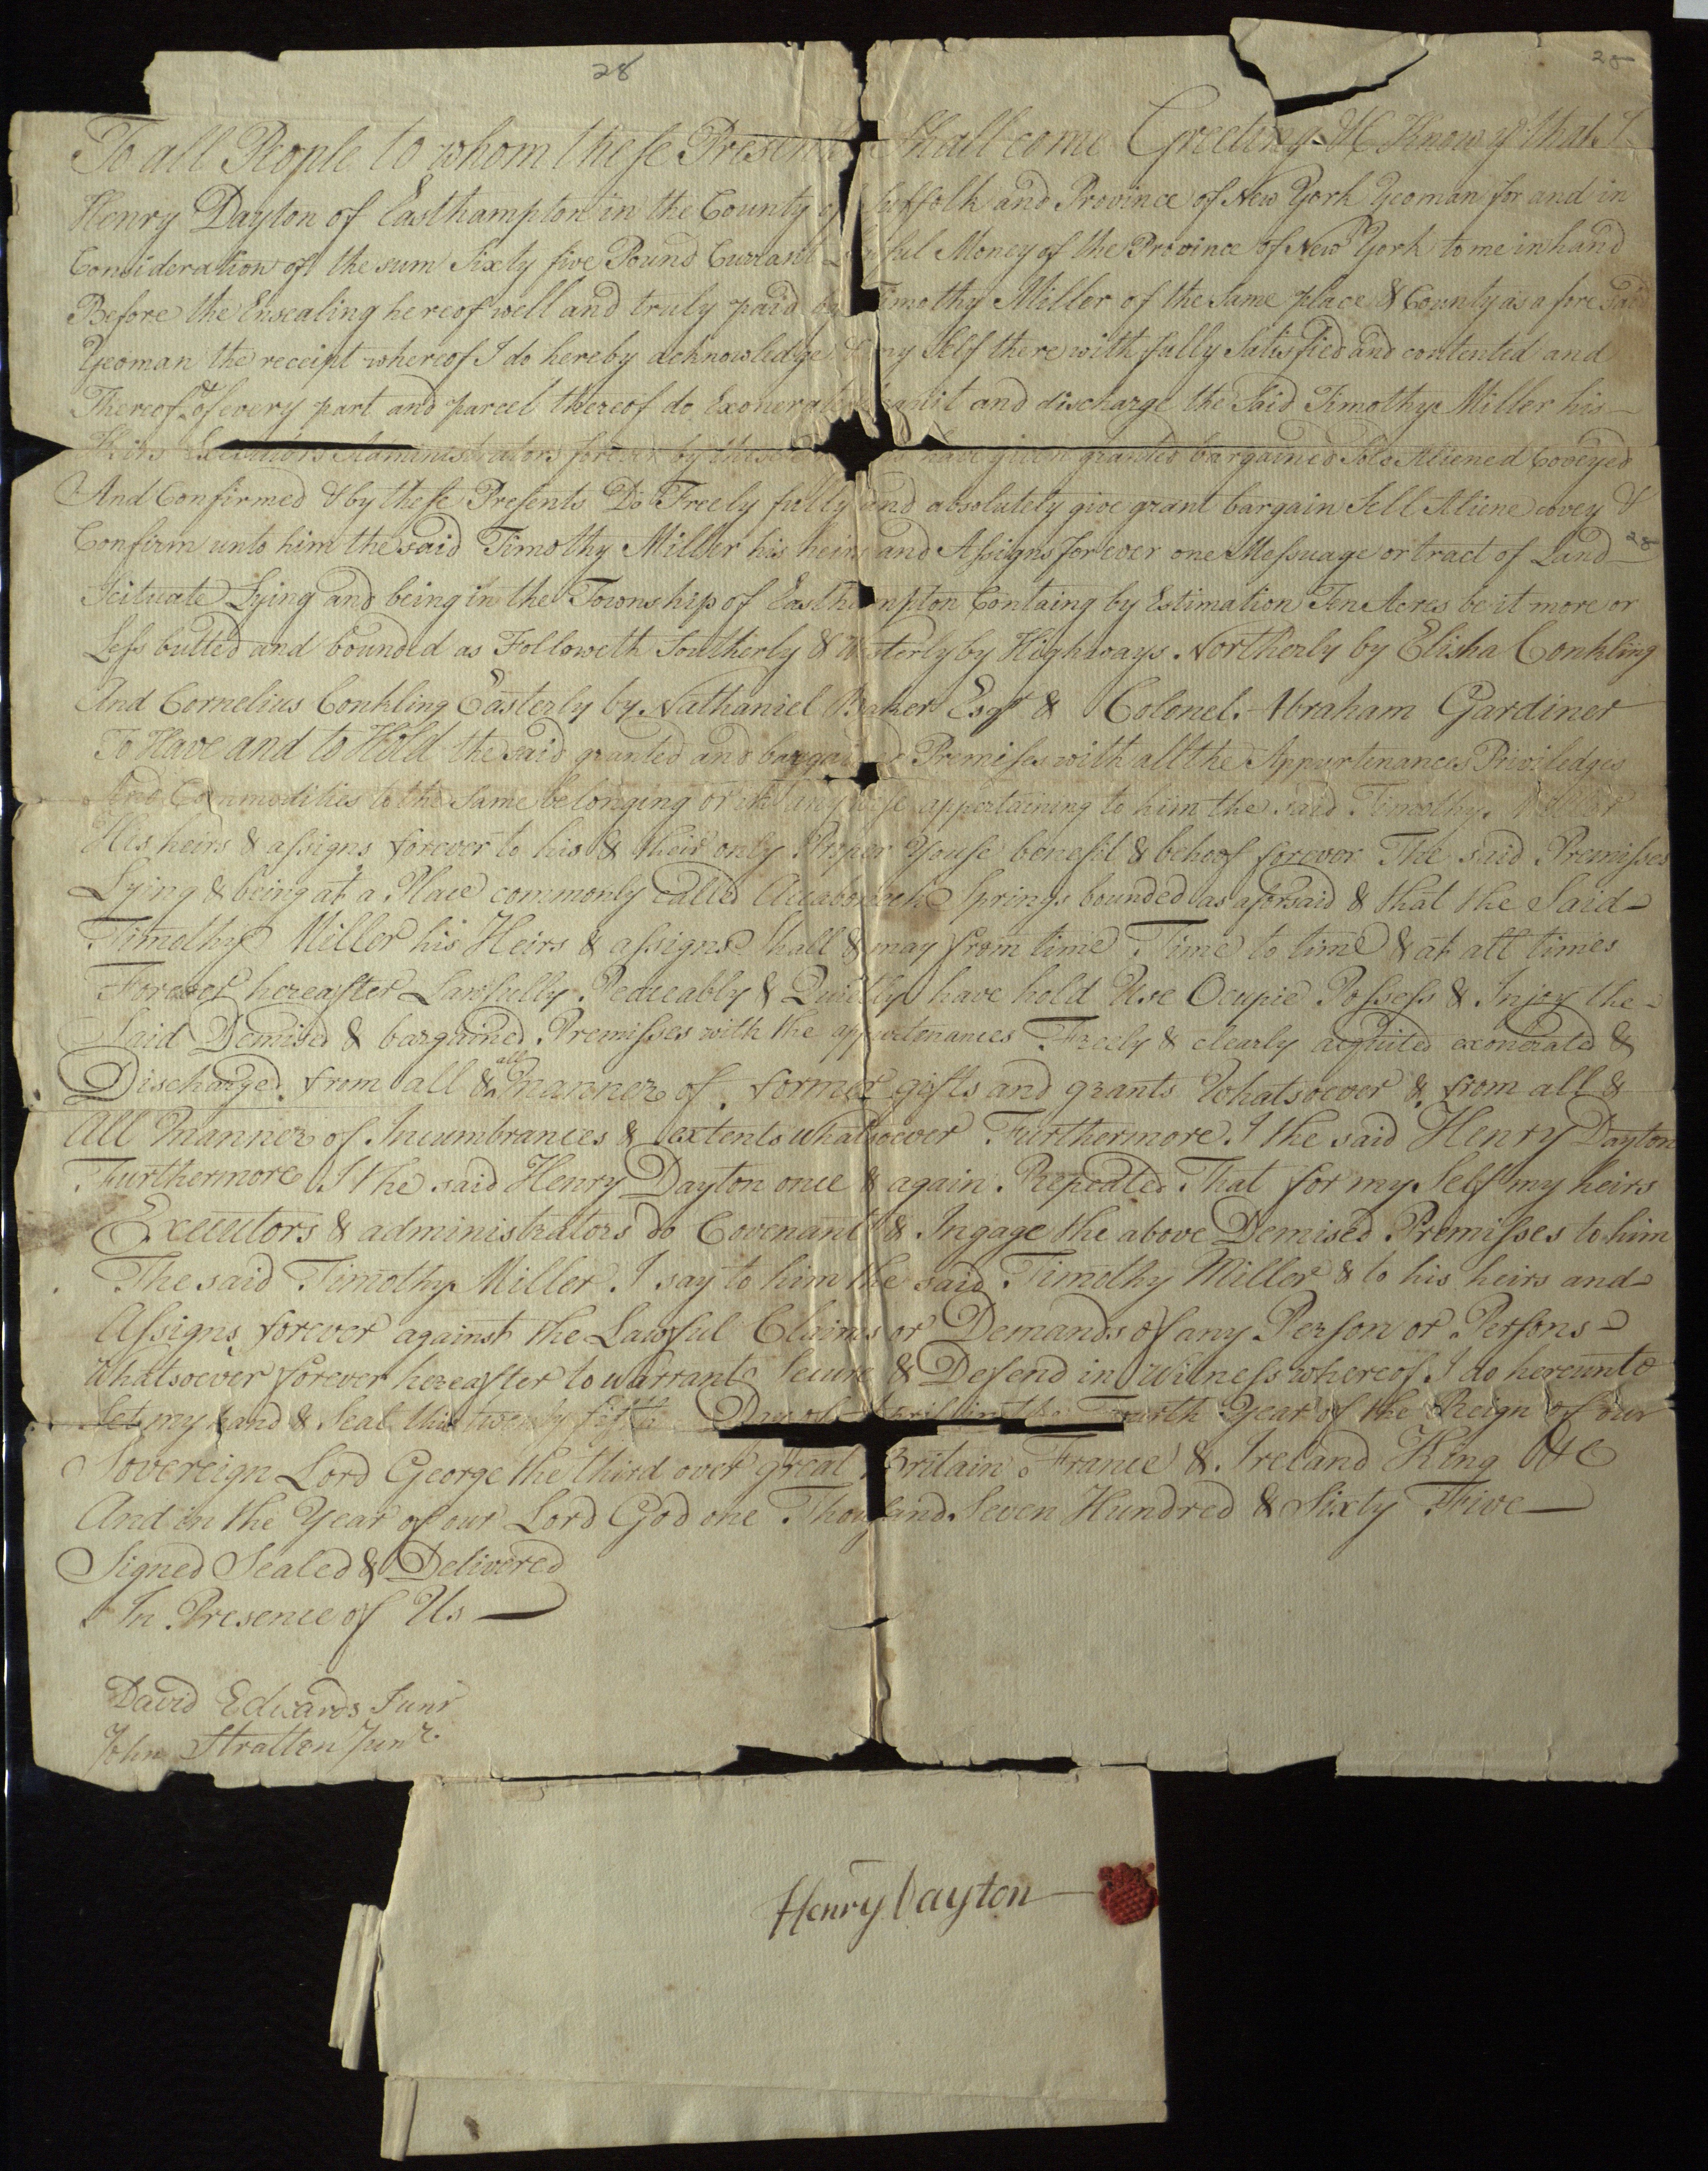 28
28
To all People to whom these Presents Shall come Greeting &c Know ye that I
Henry Dayton of Easthampton in the County of Suffolk and Province of New York Yeoman for and in
Consideration of the sum Sixty five Pound Currant Lawful Money of the Province of New York to me in hand
Before the Ensealing hereof well and truly paid by Timothy Miller of the Same place & County as a fore Said
Yeoman the receipt whereof I do hereby acknowledge & my Self there with fully Satisfied and contented and
Thereof & of every part and parcel thereof do Exonerate acquit and discharge the Said Timothy Miller his
Heirs Executors Administrators forever by these have given granted bargained Sold Aliened Coveyed
And Confirmed & by these Presents Do Freely fully and absolutely give grant bargain Sell Aliene covey &
Confirm unto him the said Timothy Miller his heirs and Assigns for ever one Messuage or tract of Land
28
Scituate Lying and being in the Township of Easthampton Containg by Estimation Ten Acres be it more or
Less butted and bounded as Followeth Southerly & Westerly by Highways Northerly by Elisha Conkling
And Cornelius Conkling Easterly by Nathaniel Baker Esqr & Colonel Abraham Gardiner
To Have and to Hold the said granted and bargained Premises with all the Appurtenances Priviledges
And Commodities to the Same belonging or in any wise appertaining to him the said Timothy Miller
His heirs & assigns forever to his & their only Proper Youse benefit & behoof forever The said Premisses
Lying & being at a Place commonly Called Accabonack Springs bounded as aforsaid & that the Said
Timothy Miller his Heirs & assigns Shall & may from time Time to time & at all times
Forever hereafter Lawfully Peaceably & Quietly have hold Use Ocupie Possess & Injoy the
Said Demised & bargained Premisses with the appurtenances Freely & clearly acquited exonerated &
Discharged from all & all manner of former gifts and grants Whatsoever & from all &
All Manner of Incumbrances & extents whatsoever Furthermore I the said Henry Dayton
Furthermore I the said Henry Dayton once & again Repeated That for my Self my heirs
Executors & administrators do Covenant & Ingage the above Demised Premisses to him
The said Timothy Miller I say to him the said Timothy Miller & to his heirs and
Assigns forever against the Lawful Claims or Demands of any Person or Persons
Whatsoever forever hereafter to warrant Secure & Defend in Witness whereof I do hereunto
Set my hand & Seal this twenty fifth Day of April in the Fourth Year of the Reign of our
Sovereign Lord George the third over great Britain France & Ireland King &c
And in the Year of our Lord God one Thousand Seven Hundred & Sixty Five
Signed Sealed & Delivered
In Presence of Us
David Edwards Junr
John Stratton Junr.
Henry Dayton